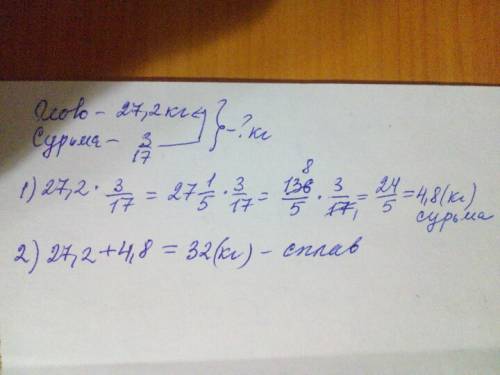 Олово – 27,2 кг
Сурьма – 3/17 } – ? кг
1) 27,2 · 3/17 = 27 1/5 · 3/17 = 136/5 8 · 3/17, = 24/5 = 4,8 (кг)
сурьма
2) 27,2 + 4,8 = 32 (кг) – сплав